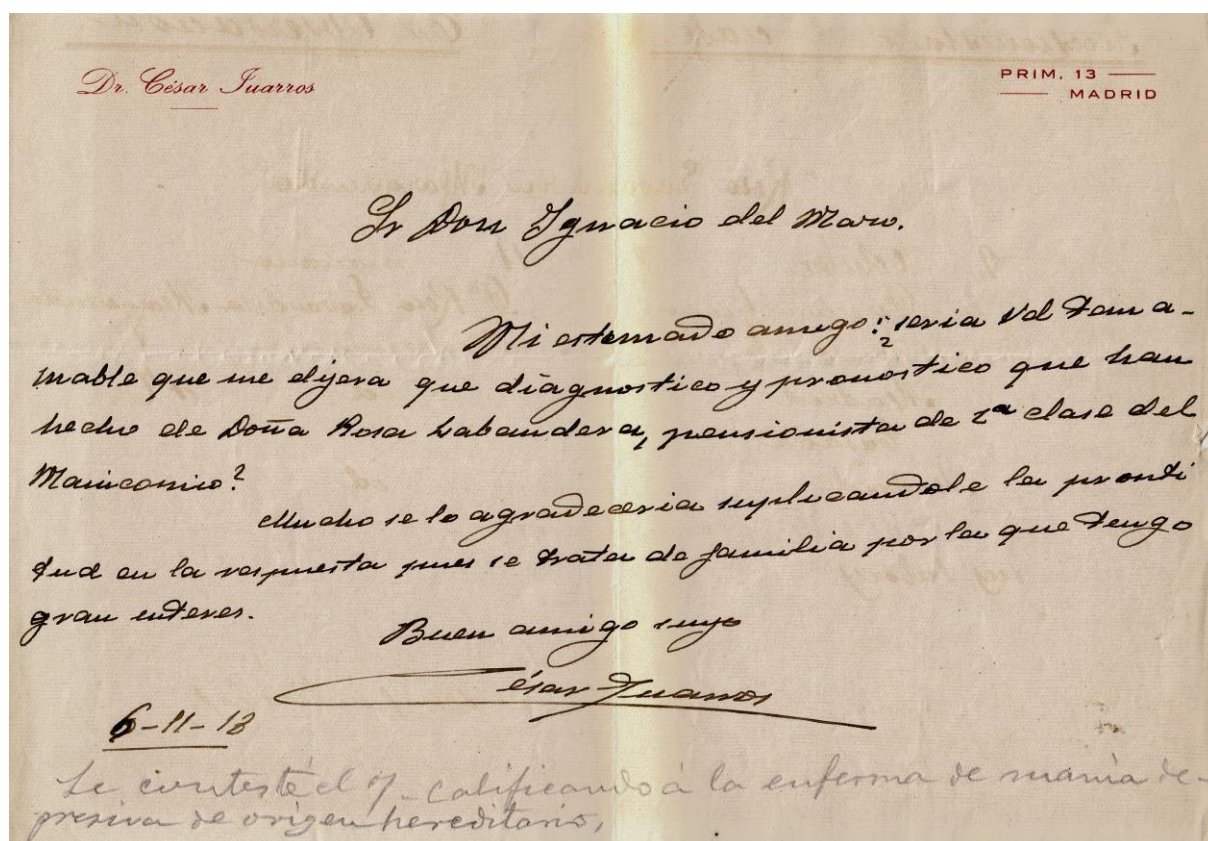 Dr. César Juarros
PRIM, 13
MADRID
Sr Don Ignacio del Mazo.
Mi estimado amigo: ¿seria Vd tan a-
mable que me dijera que diagnostico y pronostico que han
hecho de Doña Rosa Labandera, pensionista de 2ª clase del
Manicomio?
Mucho se lo agradeceria suplicandole la pronti
tud en la respuesta pues se trata de familia por la que tengo
gran interes.
Buen amigo suyo
César Juarros
6-11-18
Le contesté el 7 - calificando á la enferma de mania de-
presiva de origen hereditario,